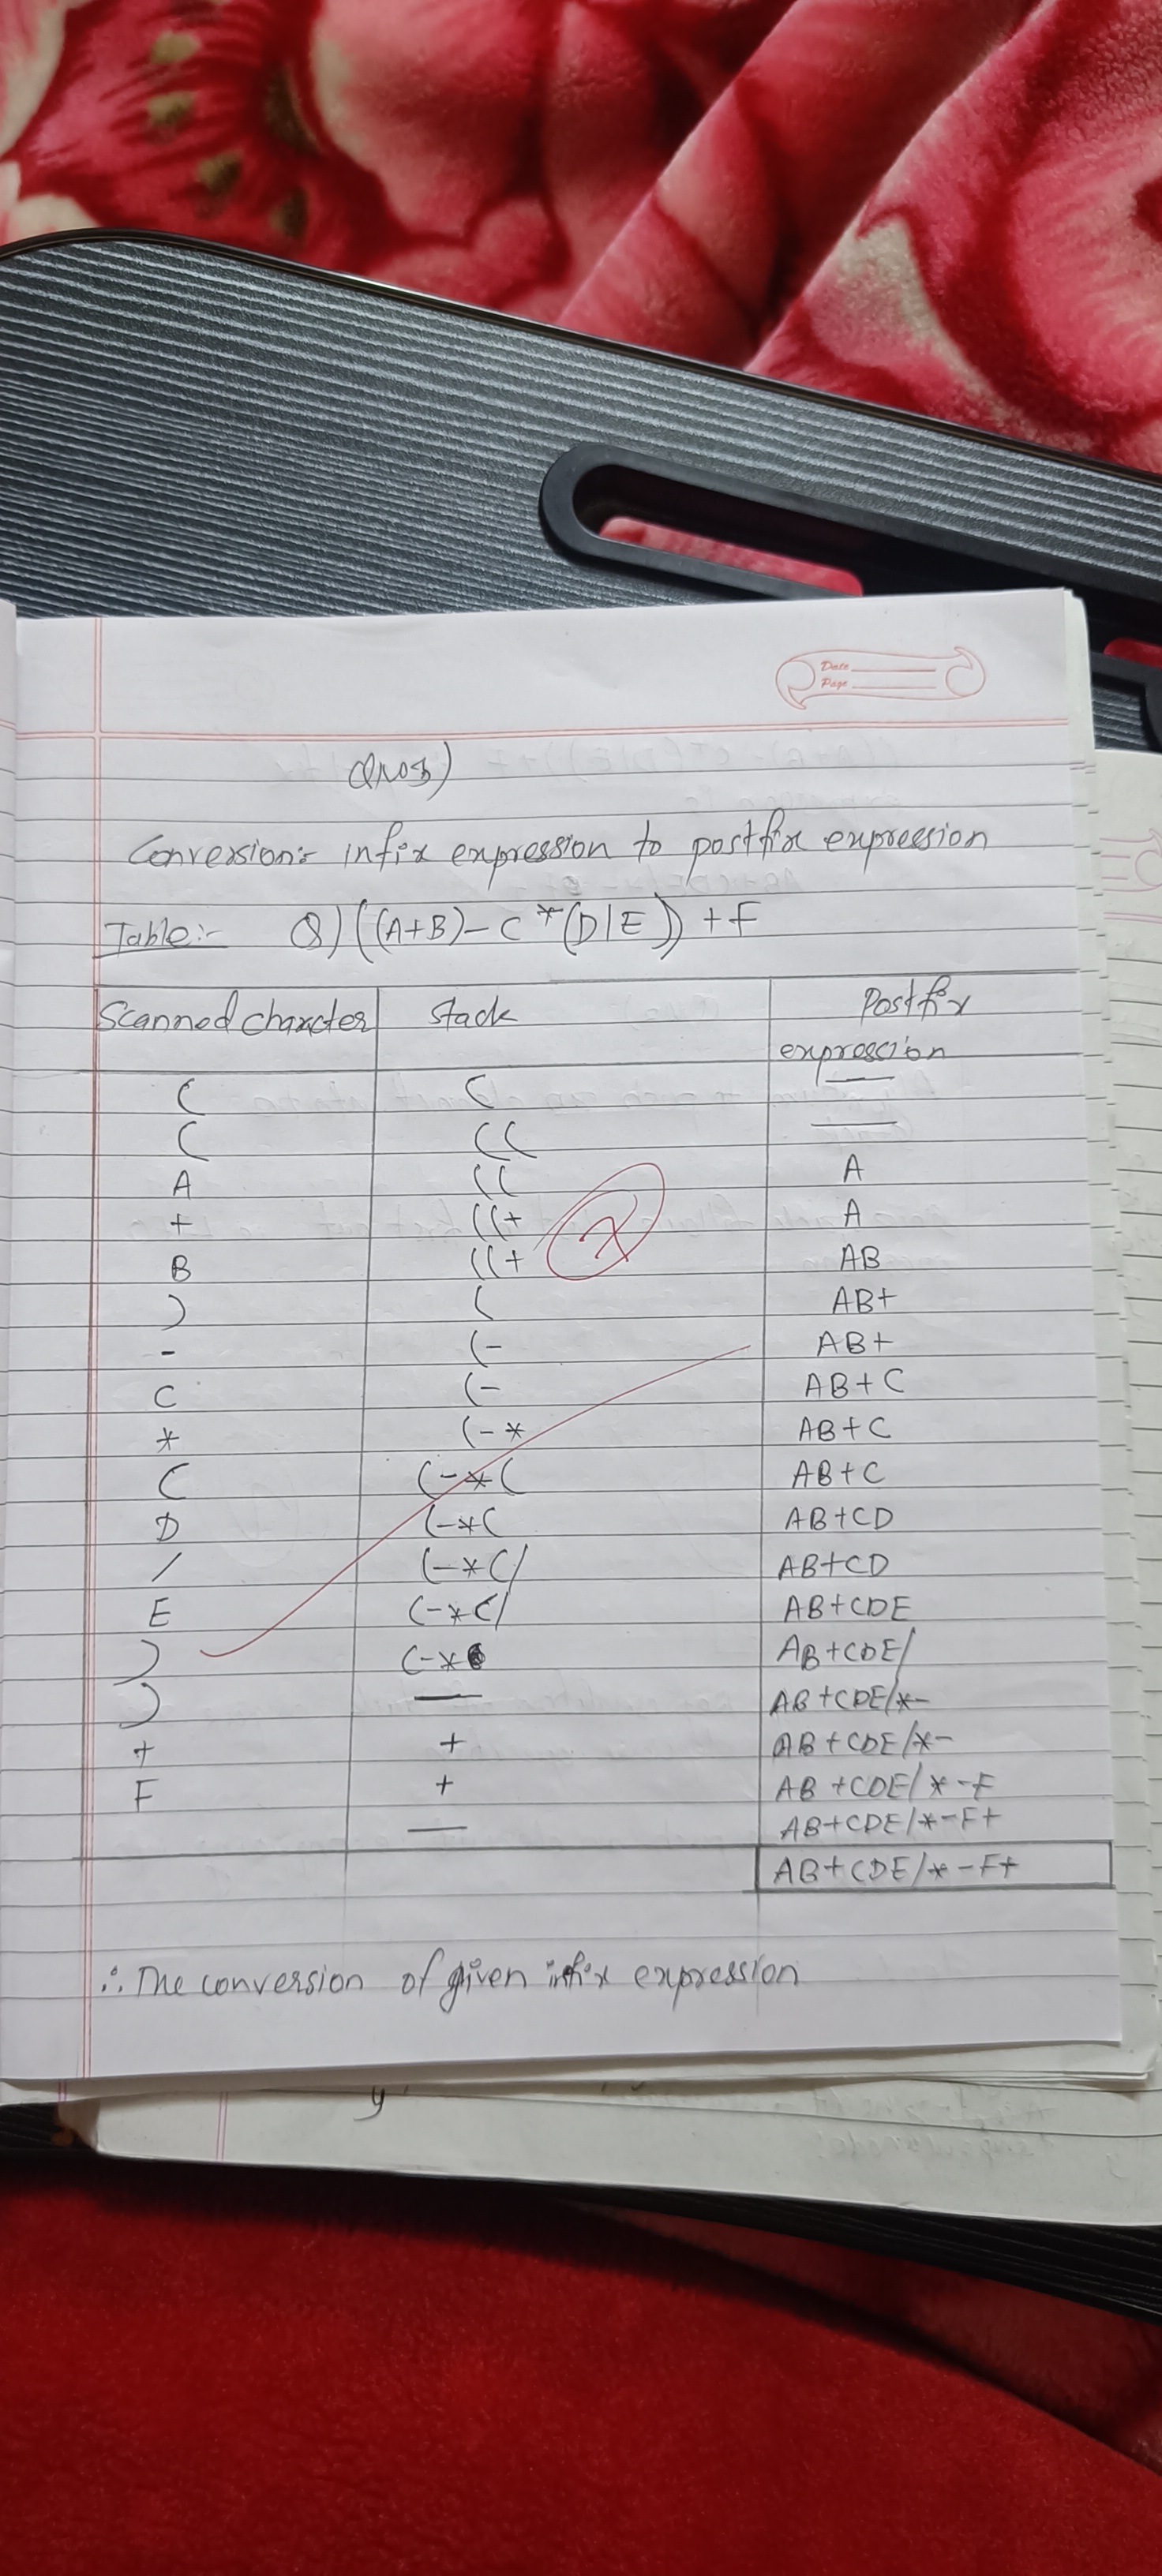 Date
Page
QNo3)
Conversion:- infix expression to postfix expression
Table:- Q) ((A+B)-C*(D/E))+F
Scanned charcter Stack Postfix
expression
( ( —
( (( —
A (( A
+ ((+ A
B ((+ AB
) ( AB+
- (- AB+
C (- AB+C
* (-* AB+C
( (-*( AB+C
D (-*( AB+CD
/ (-*(/ AB+CD
E (-*(/ AB+CDE
) (-* AB+CDE/
) — AB+CDE/*-
+ + AB+CDE/*-
F + AB+CDE/*-F
— AB+CDE/*-F+
AB+CDE/*-F+
∴ The conversion of given infix expression
y